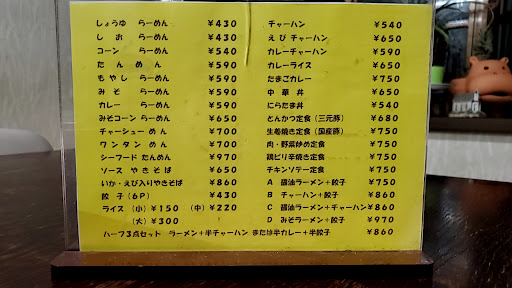 しょうゆ らーめん ￥430
しお らーめん ￥430
コーン らーめん ￥540
たんめん ￥590
もやし らーめん ￥590
みそ らーめん ￥590
カレー らーめん ￥590
みそコーン らーめん ￥650
チャーシューめん ￥700
ワンタンめん ￥700
シーフードたんめん ￥970
ソース やきそば ￥650
いか・えび入りやきそば ￥860
餃子(6P) ￥430
ライス (小)￥150 (中)￥220
(大)￥300
チャーハン ￥540
えびチャーハン ￥650
カレーチャーハン ￥590
カレーライス ￥650
たまごカレー ￥750
中華丼 ￥650
にらたま丼 ￥540
とんかつ定食(三元豚) ￥680
生姜焼き定食(国産豚) ￥750
肉・野菜炒め定食 ￥750
鶏ピリ辛焼き定食 ￥750
チキンソテー定食 ￥750
A 醤油ラーメン+餃子 ￥750
B チャーハン+餃子 ￥860
C 醤油ラーメン+チャーハン ￥860
D みそラーメン+餃子 ￥970
ハーフ3点セット ラーメン+半チャーハン または半カレー+半餃子 ￥860